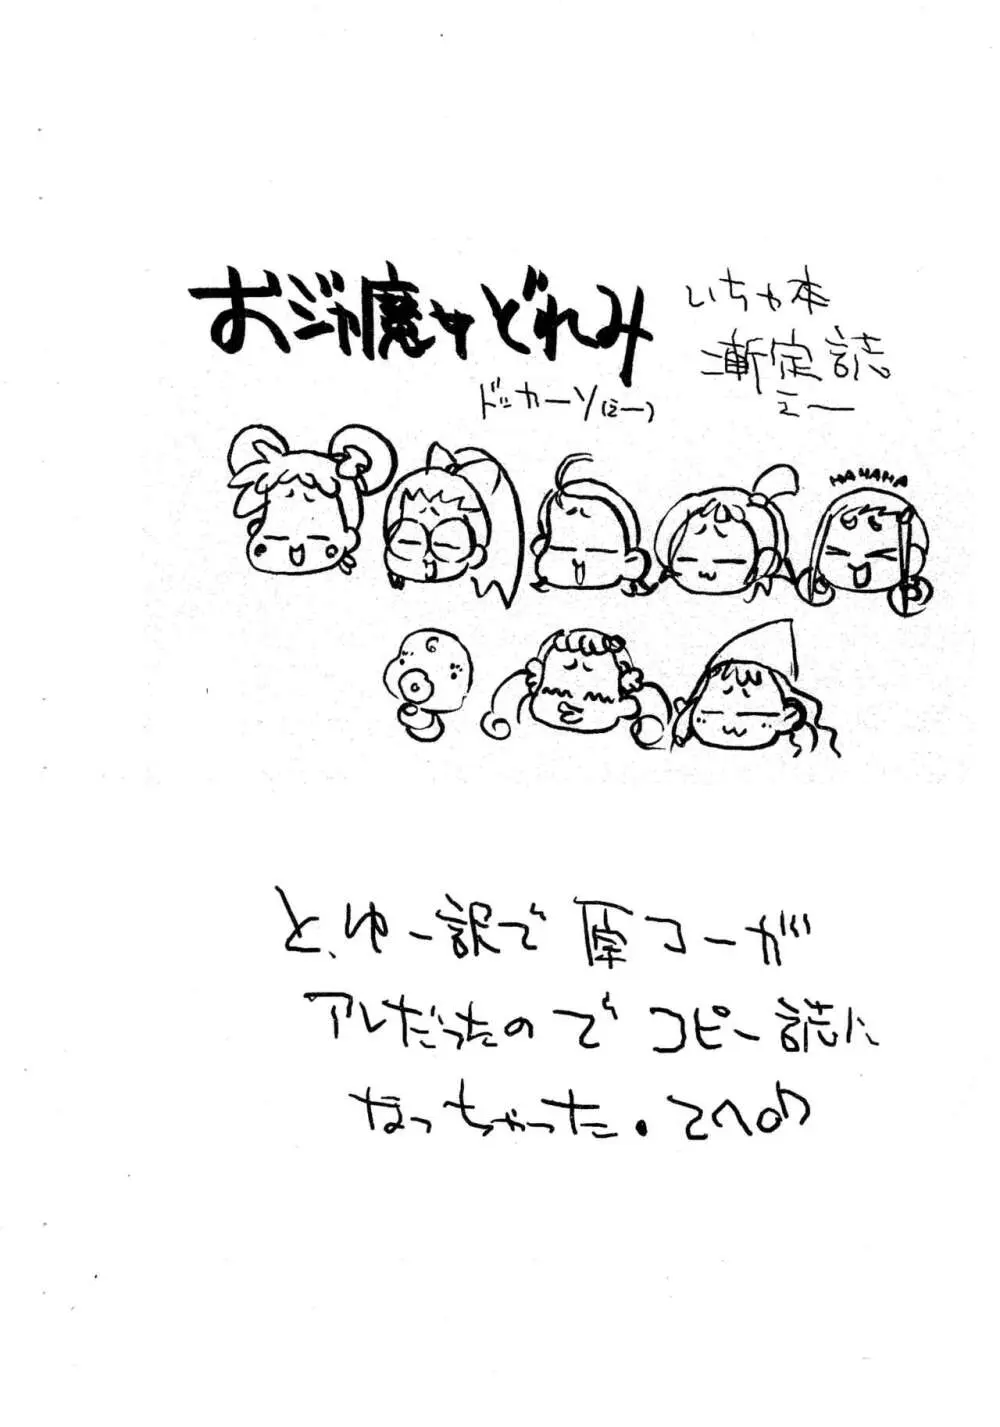 おジャ魔女どれみ
ドッカーソ(ミー)
いちゃ本
漸定誌。
ミー
HAHAHA
と、ゆー訳で原コーが
アレだったのでコピー誌に
なっちゃった。